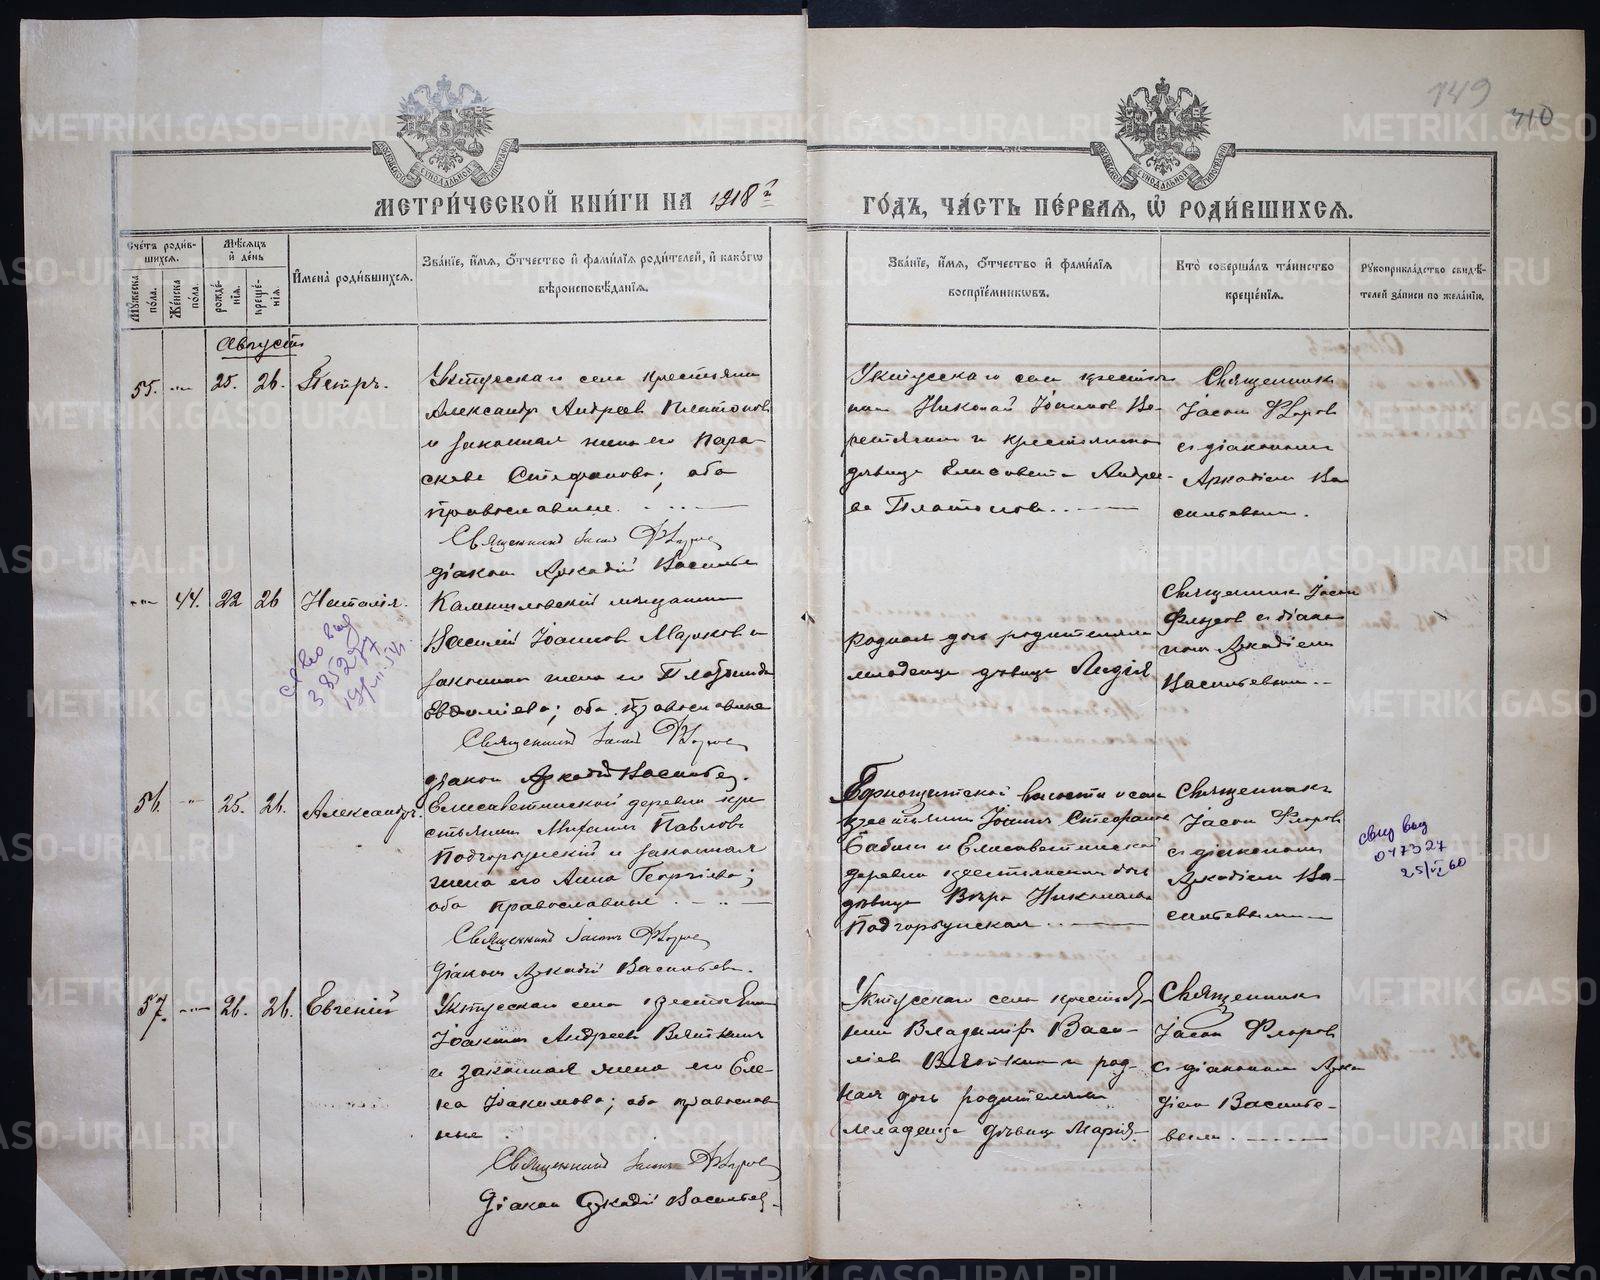 149
310
МЕТРИ́ЧЕСКОЙ КНИ́ГИ НА 1918 г.
ГО́ДЪ, ЧА́СТЬ ПЕ́РВАЯ, Ѿ РОДИ́ВШИХСЯ.
Сче́тъ роди́в-
шихся.
Мꙋ́жеска по́ла.
Же́нска по́ла.
Мѣ́сяцъ
и҆ де́нь
рожде́-
нїя.
креще́-
нїя.
И҆мена̀ роди́вшихся.
Зва́нїе, и҆́мя, ѻ҆́тчество и҆ фами́лїя роди́телей, и҆ како́гѡ
вѣроисповѣ́данїя.
Зва́нїе, и҆́мя, ѻ҆́тчество и҆ фами́лїя
воспрїе́мникѡвъ.
Кто̀ соверша́лъ та́инство
креще́нїя.
Рꙋкоприкла́дство свидѣ́-
телей за́писи по жела́нїю.
Августъ
55. 25. 26. Петръ.
Уктусскаго села крестьянин
Александр Андреев Платонов
и законная жена его Пара-
скева Стефанова; оба
православные.
Священник Іасон Флоров
діакон Аркадій Васильев
Уктусскаго села крестья-
нин Николай Іоаннов
и крестьянска
дѣвица Елисавета Андрее-
ва Платонова.
Священник
Іасон Флоров
с діаконом
Аркадіем Ва
сильевым.
44. 22 26 Наталія.
Камышловскій мѣщанин
Василій Іоаннов Марков и
законная жена его
оба православные
Священник Іасон Флоров
діакон Аркадій Васильев.
родная дочь родителям
младенца дѣвица Лидія
Священник Іасон
Флоров с діако
ном Аркадіем
Васильевым.
385277
56. 25. 26. Александръ.
Елисаветинской деревни кре
стьянин Михаил Павлов
Подгорбунскій и законная
жена его Анна Георгіева;
оба православные.
Священник Іасон Флоров
Діакон Аркадій Васильев.
Горнощитской волости и села
крестьянин Іоанн Стефанов
Бабин и Елисаветинской
деревни крестьянская дочь
дѣвица Вѣра Николаева
Подгорбунская
Священник
Іасон Флоров
с діаконом
Аркадіем Ва-
сильевым
свид выд
047327
25/VI 60
57. 26. 26. Евгеній
Уктусскаго села крестьянин
Іоаким Андреев Вяткин
и законная жена его Еле-
на Іоакимова; оба православ
ные
Священник Іасон Флоров
Діакон Аркадій Васильев.
Уктусскаго села крестья
нин Владимір Васи-
ліев Вяткин и род-
ная дочь родителям
младенца дѣвица Марія.
Священник
Іасон Флоров
с діаконом Арка
діем Василье-
вым.